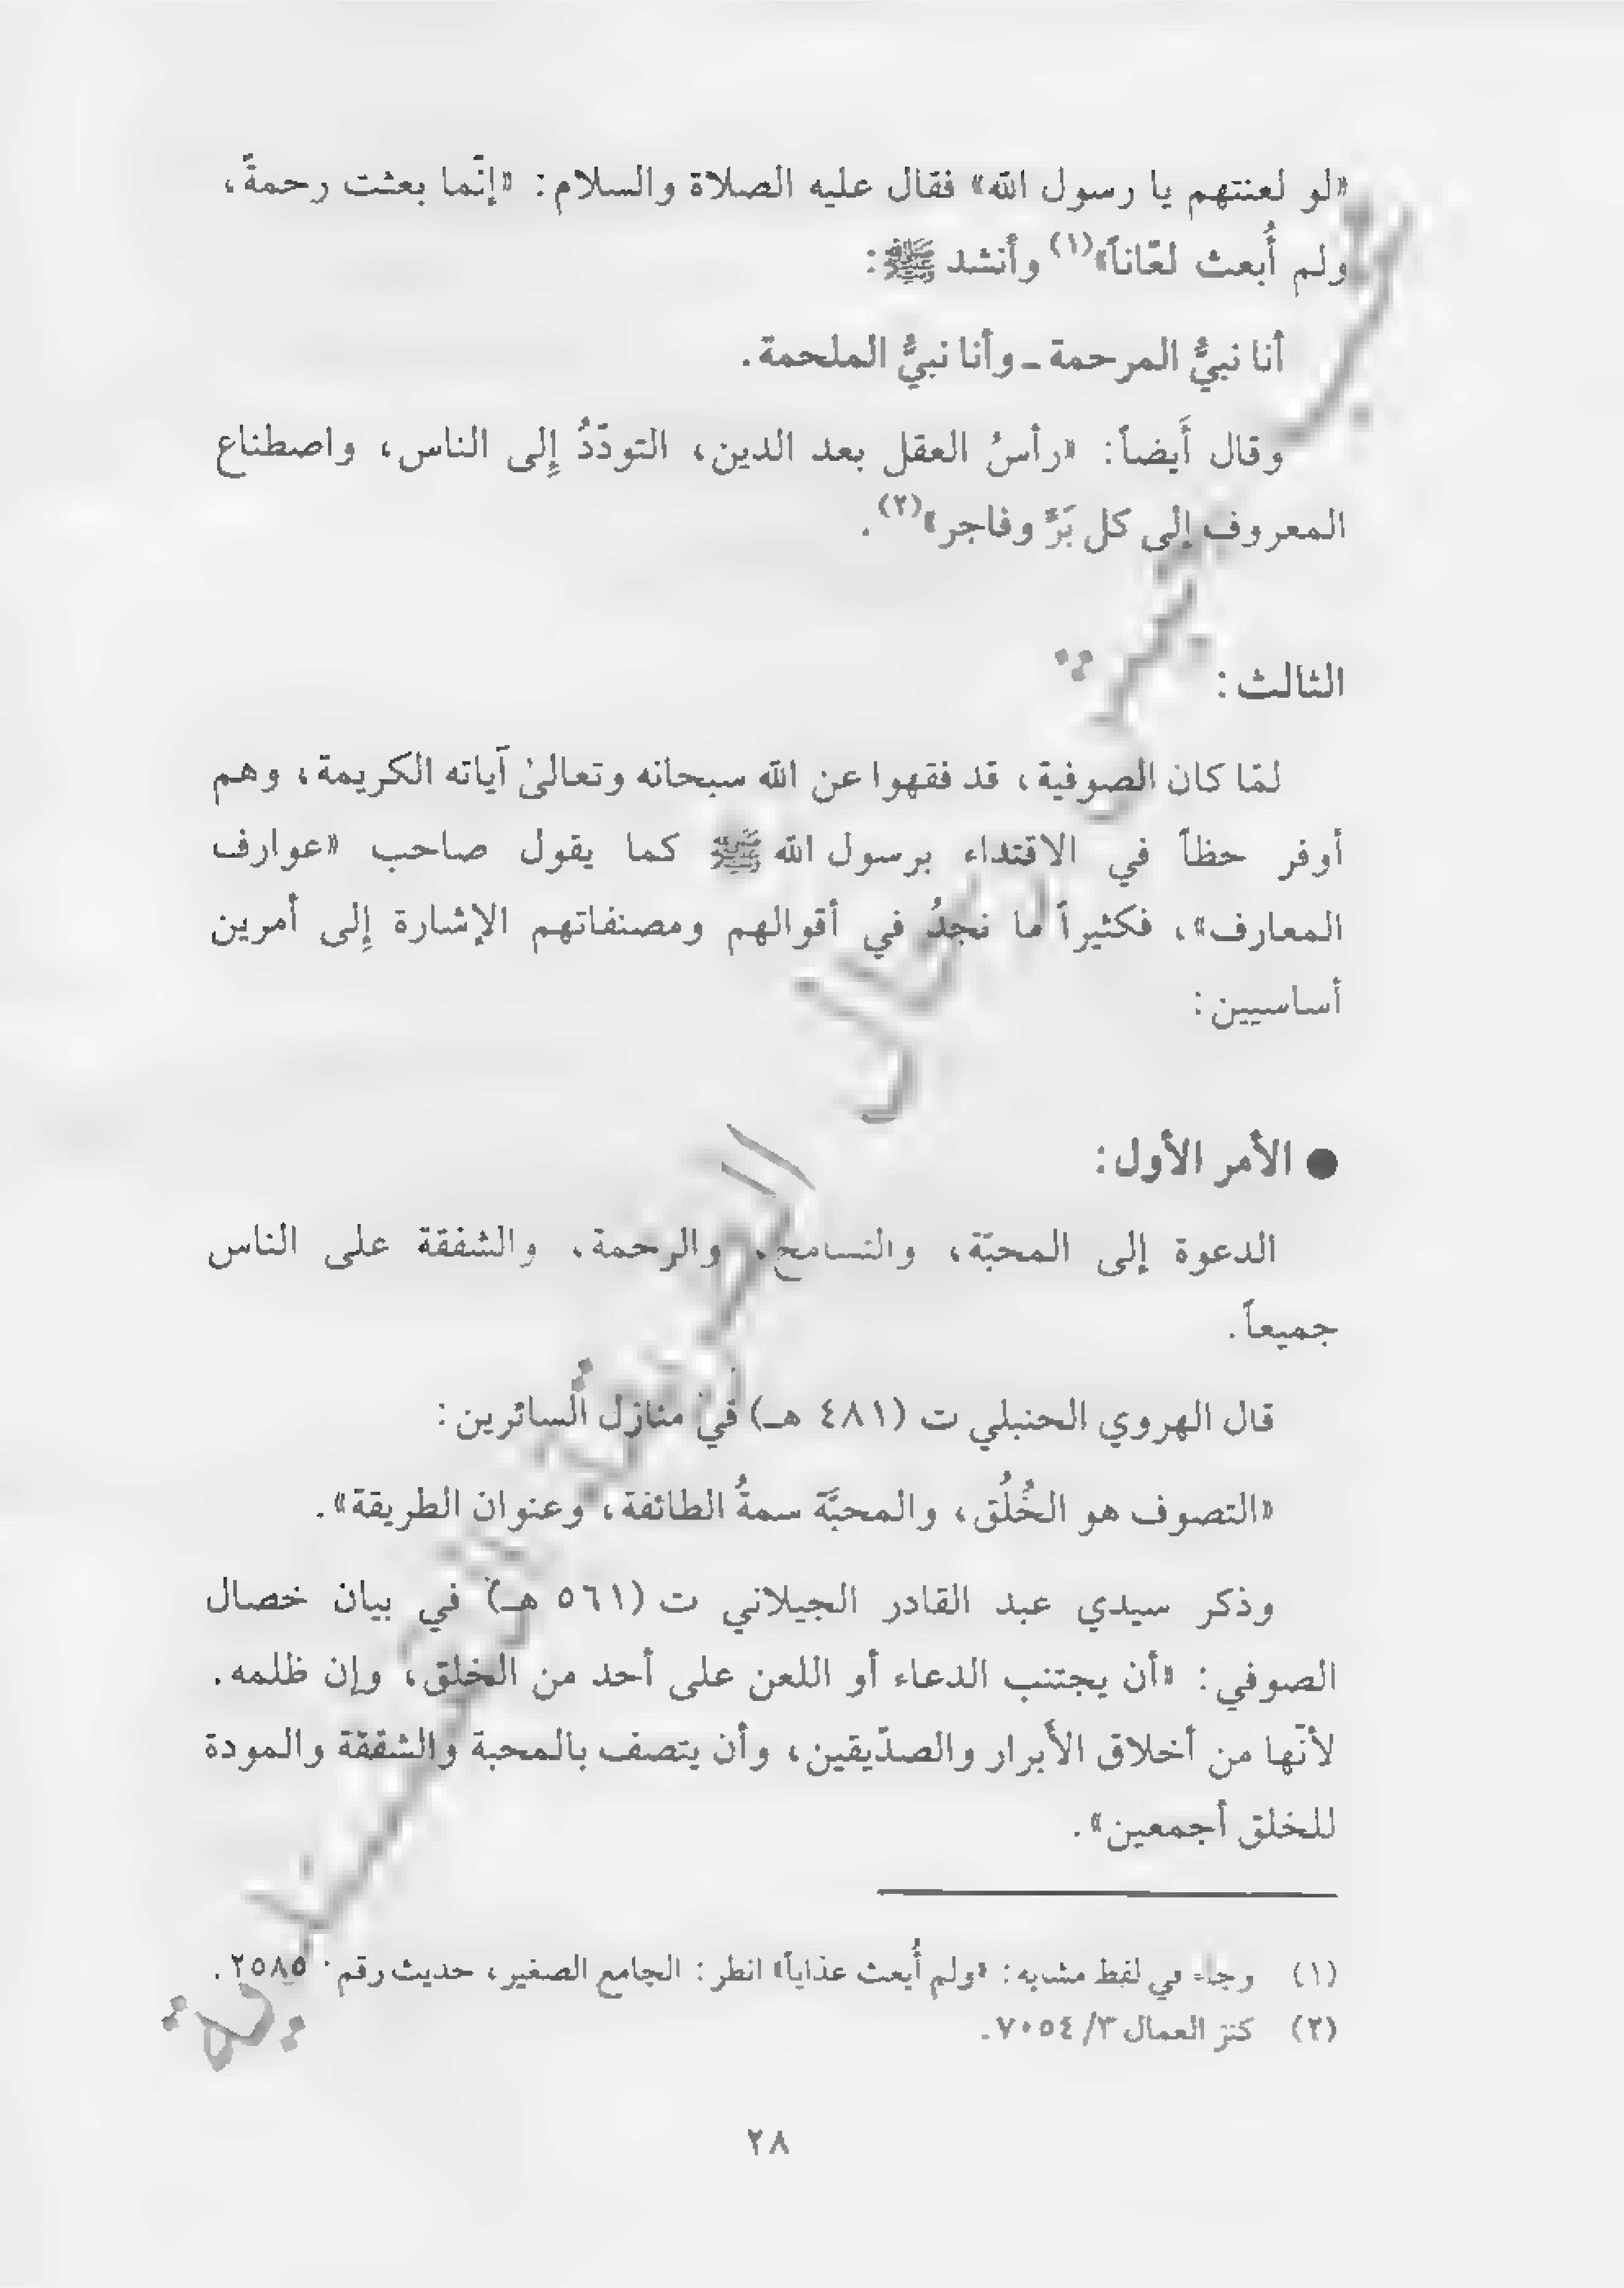 «لو لعنتهم يا رسول الله» فقال عليه الصلاة والسلام: «إنّما بعثت رحمةً،
ولم أُبعث لعّاناً»(١) وأنشد ﷺ:
أنا نبيُّ المرحمة ـ وأنا نبيُّ الملحمة.
وقال أَيضاً: «رأسُ العقل بعد الدين، التودّدُ إِلى الناس، واصطناع
المعروف إلى كل بَرٍّ وفاجر»(٢).
الثالث:
لمّا كان الصوفية، قد فقهوا عن الله سبحانه وتعالىٰ آياته الكريمة، وهم
أوفر حظاً في الاقتداء برسول الله ﷺ كما يقول صاحب «عوارف
المعارف»، فكثيراً ما نجدُ في أقوالهم ومصنفاتهم الإشارة إِلى أمرين
أساسيين:
● الأمر الأول:
الدعوة إلى المحبّة، والتسامح، والرحمة، والشفقة على الناس
جميعاً.
قال الهروي الحنبلي ت (٤٨١ هـ) في منازل السائرين:
«التصوف هو الخُلُق، والمحبَّة سمةُ الطائفة، وعنوان الطريقة».
وذكر سيدي عبد القادر الجيلاني ت (٥٦١ هـ) في بيان خصال
الصوفي: «أن يجتنب الدعاء أو اللعن على أحد من الخلق، وإن ظلمه.
لأنّها من أخلاق الأبرار والصدّيقين، وأن يتصف بالمحبة والشفقة والمودة
للخلق أجمعين».
(١) وجاء في لفظ مشابه: «ولم أُبعث عذاباً» انظر: الجامع الصغير، حديث رقم ٢٥٨٥.
(٢) كنز العمال ٣/ ٧٠٥٤.
٢٨